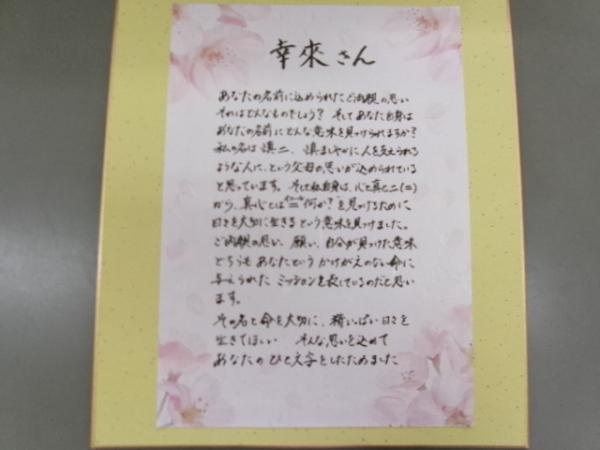 幸來さん
あなたの名前に込められたご両親の思い
それはどんなものでしょう？ そしてあなた自身は
あなたの名前にどんな意味を見つけられますか？
私の名は慎二、慎ましやかに人を支えられる
ような人に、という父母の思いが込められている
と思っています。そして私自身は、心と真と二(＝)
から、真心とは＝イコール何か？を見つけるために
日々を大切に生きるという意味を見つけました。
ご両親の思い、願い、自分が見つけた意味
どちらもあなたというかけがえのない命に
与えられたミッションを表しているのだと思い
ます。
その名と命を大切に、精いっぱい日々を
生きてほしい そんな思いを込めて
あなたのひと文字をしたためました